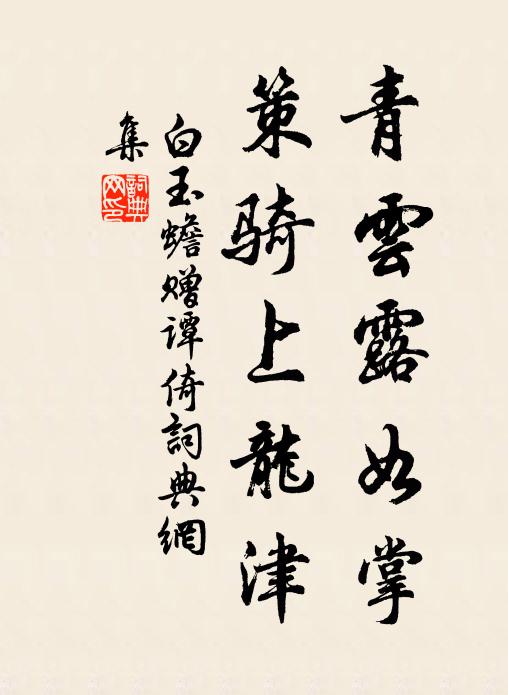 青雲露如掌
策騎上龍津
白玉蟾贈譚倚詞典網
集
詞典
网印